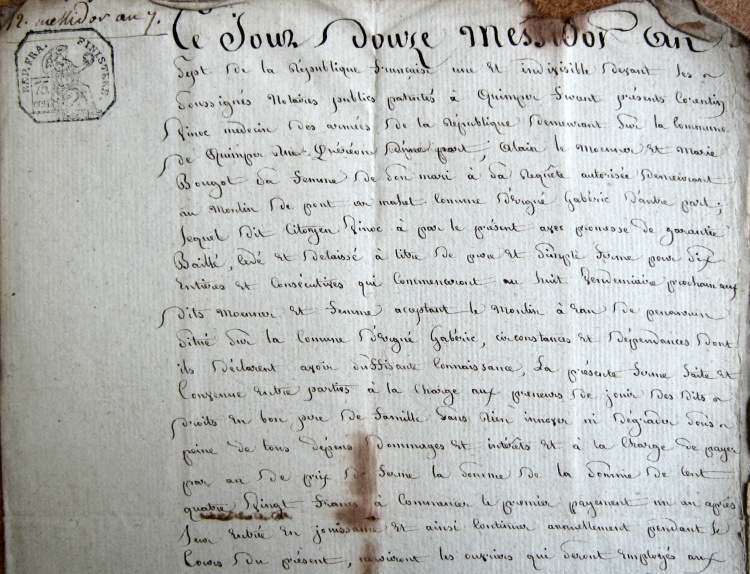 12. messidor an 7.
REP. FRA. FINISTERE
75 CENT
Ce Jour Douze Messidor an
Sept De la République française une Et indivisible Devant Les
Soussignés Notaires publics patentés à Quimper Furent présents Corentin
Vinoc medecin Des armées De la République Demeurant Sur la Commune
De Quimper Rue Quéréon D'une part, Alain le Moenner Et Marie
Bougot Sa Femme De Son mari à Sa Requête autorisée Demeurant
au Moulin De pont an mahet Commune D'Ergué Gabéric D'autre part;
Lequel Dit Citoyen Vinoc à par le présent avec promesse de garantie
Baillé, Cedé et Delaissé à titre De pure et Simple Ferme pour Six
Entières et Consécutives qui Commenceront au huit Vendemiaire prochain aux
Dits Moenner Et Femme acceptant le Moulin à Eau De penarun
Situé Sur la Comune D'Ergué Gabéric, circonstances et Dépendances Dont
ils Déclarent avoir Suffisante Connaissance, La présente Ferme Faite et
Convenue Entre parties à la Charge aux preneurs De jouir Des Dits
Droits En bon pere De Famille Sans Rien innover ni Dégrader Sous
peine de tous Depens Dommages Et intérêts Et à la Charge De payer
par an De prix De Ferme la Somme De la Somme De Cent
quatre Vingt Francs à Commencer le premier payement un an après
Leur Entrée En jouissance Et ainsi Continuer annuellement pendant le
Cours Du présent, nouriront les ouvriers qui Seront Employés aux